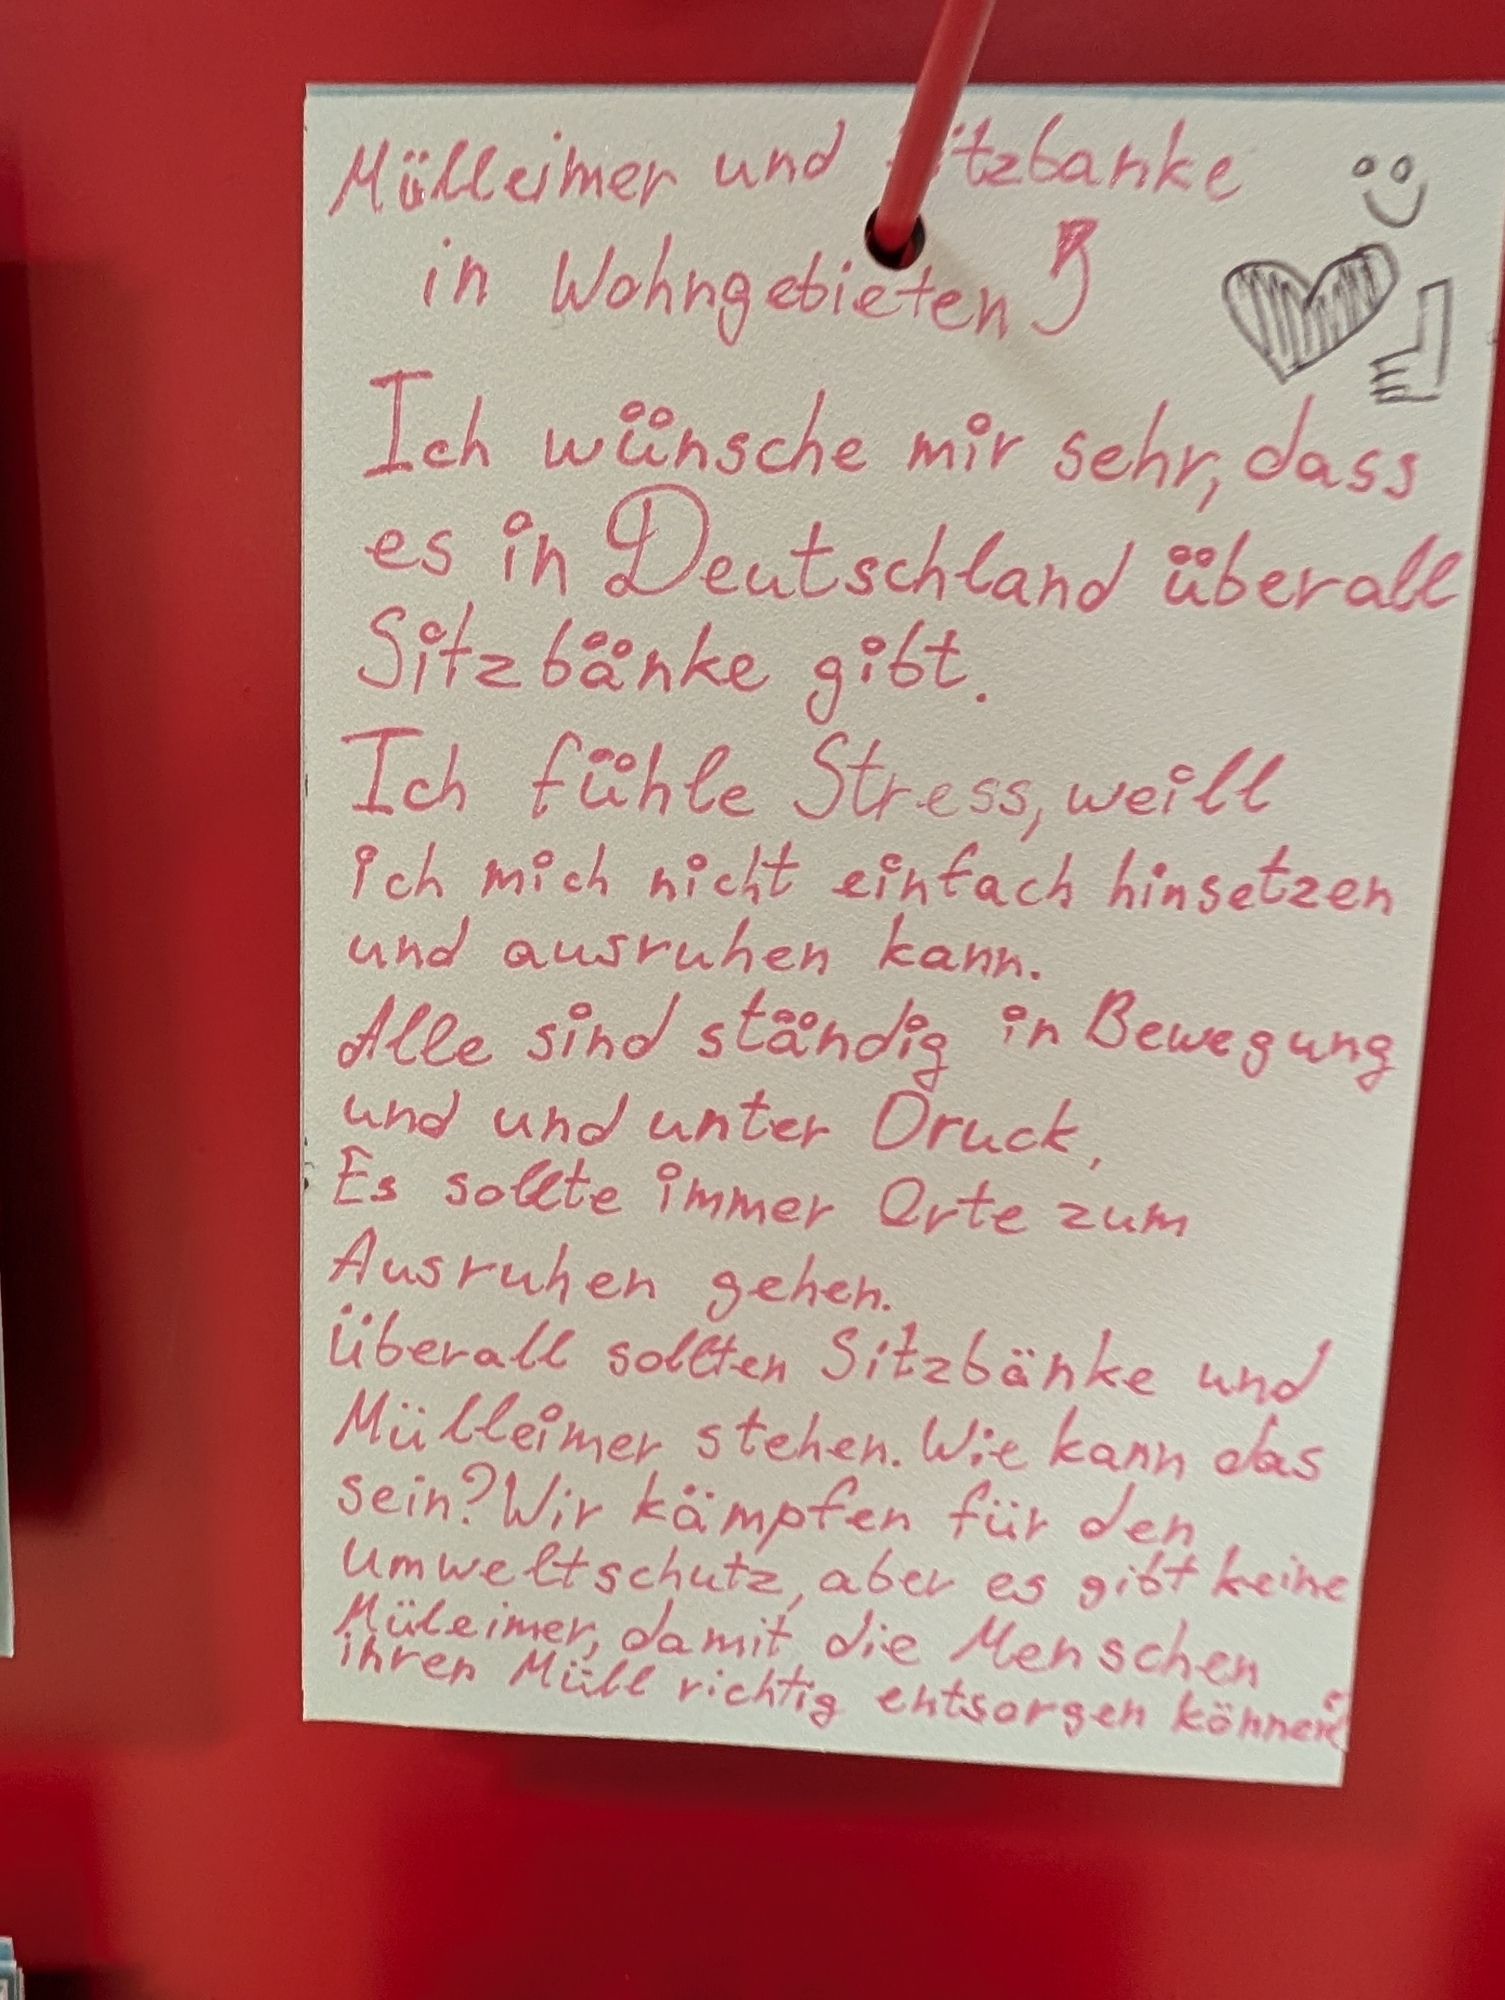 Mülleimer und Sitzbanke
in Wohngebieten
Ich wünsche mir sehr, dass
es in Deutschland überall
Sitzbänke gibt.
Ich fühle Stress, weill
ich mich nicht einfach hinsetzen
und ausruhen kann.
Alle sind ständig in Bewegung
und und unter Druck,
Es sollte immer Orte zum
Ausruhen gehen.
Überall sollten Sitzbänke und
Mülleimer stehen. Wie kann das
sein? Wir kämpfen für den
Umweltschutz, aber es gibt keine
Müleimer, damit die Menschen
ihren Müll richtig entsorgen können